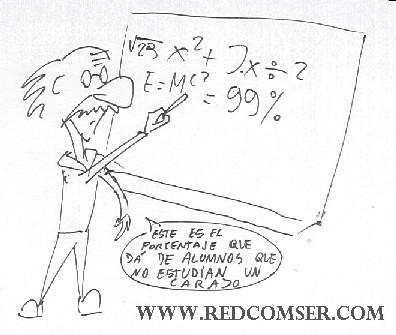 √23 x² + 7.x ÷ 2
E = MC²
= 99%
ESTE ES EL
PORCENTAJE QUE
DA DE ALUMNOS QUE
NO ESTUDIAN UN
CARAJO
WWW.REDCOMSER.COM